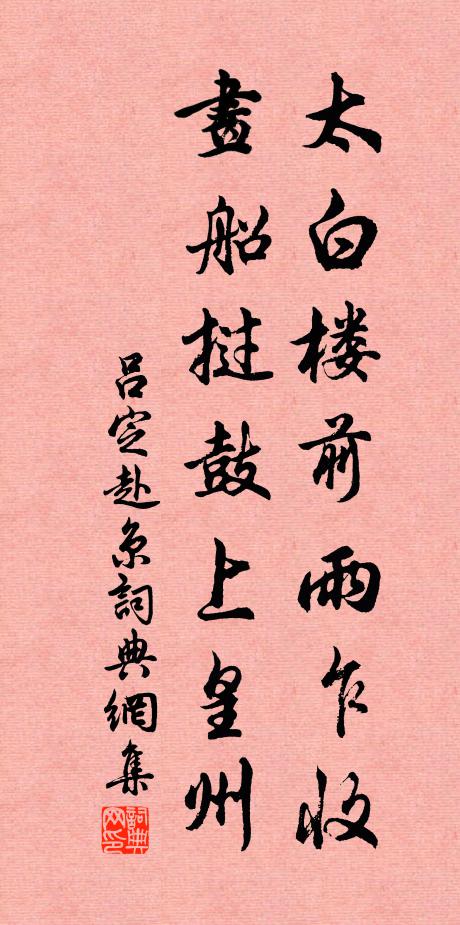 太白楼前雨乍收
畫船挝鼓上皇州
吕定赴京詞典網集
詞典
网印